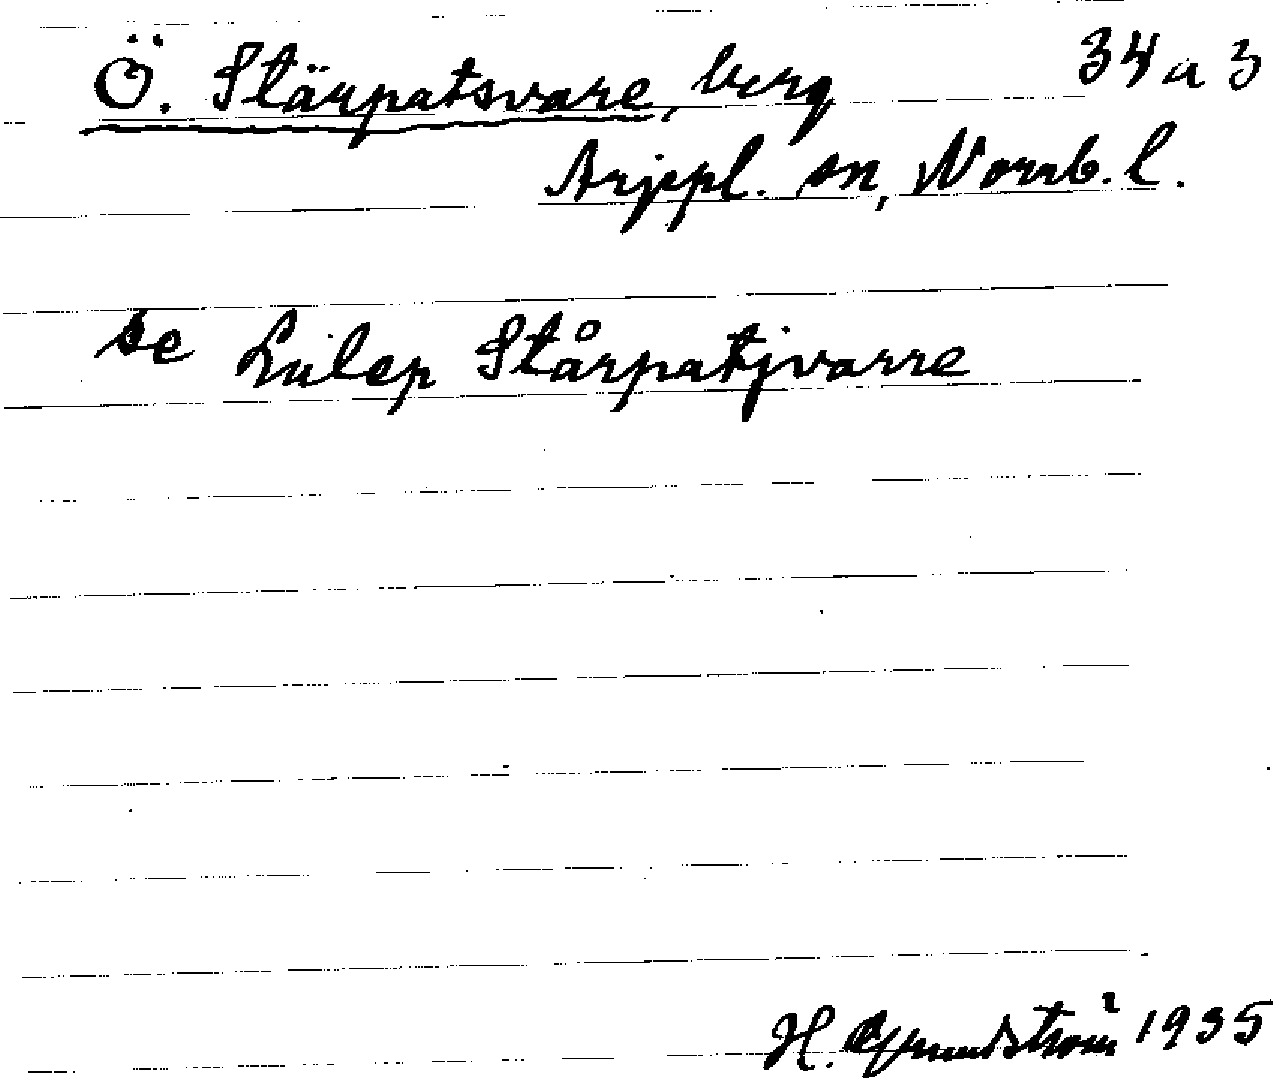 Ö. Stärpatsvare, berg 34 a 3
Arjepl. sn, Norrb. l.
se Lulep Stårpatjvarre
H. Grundström 1935